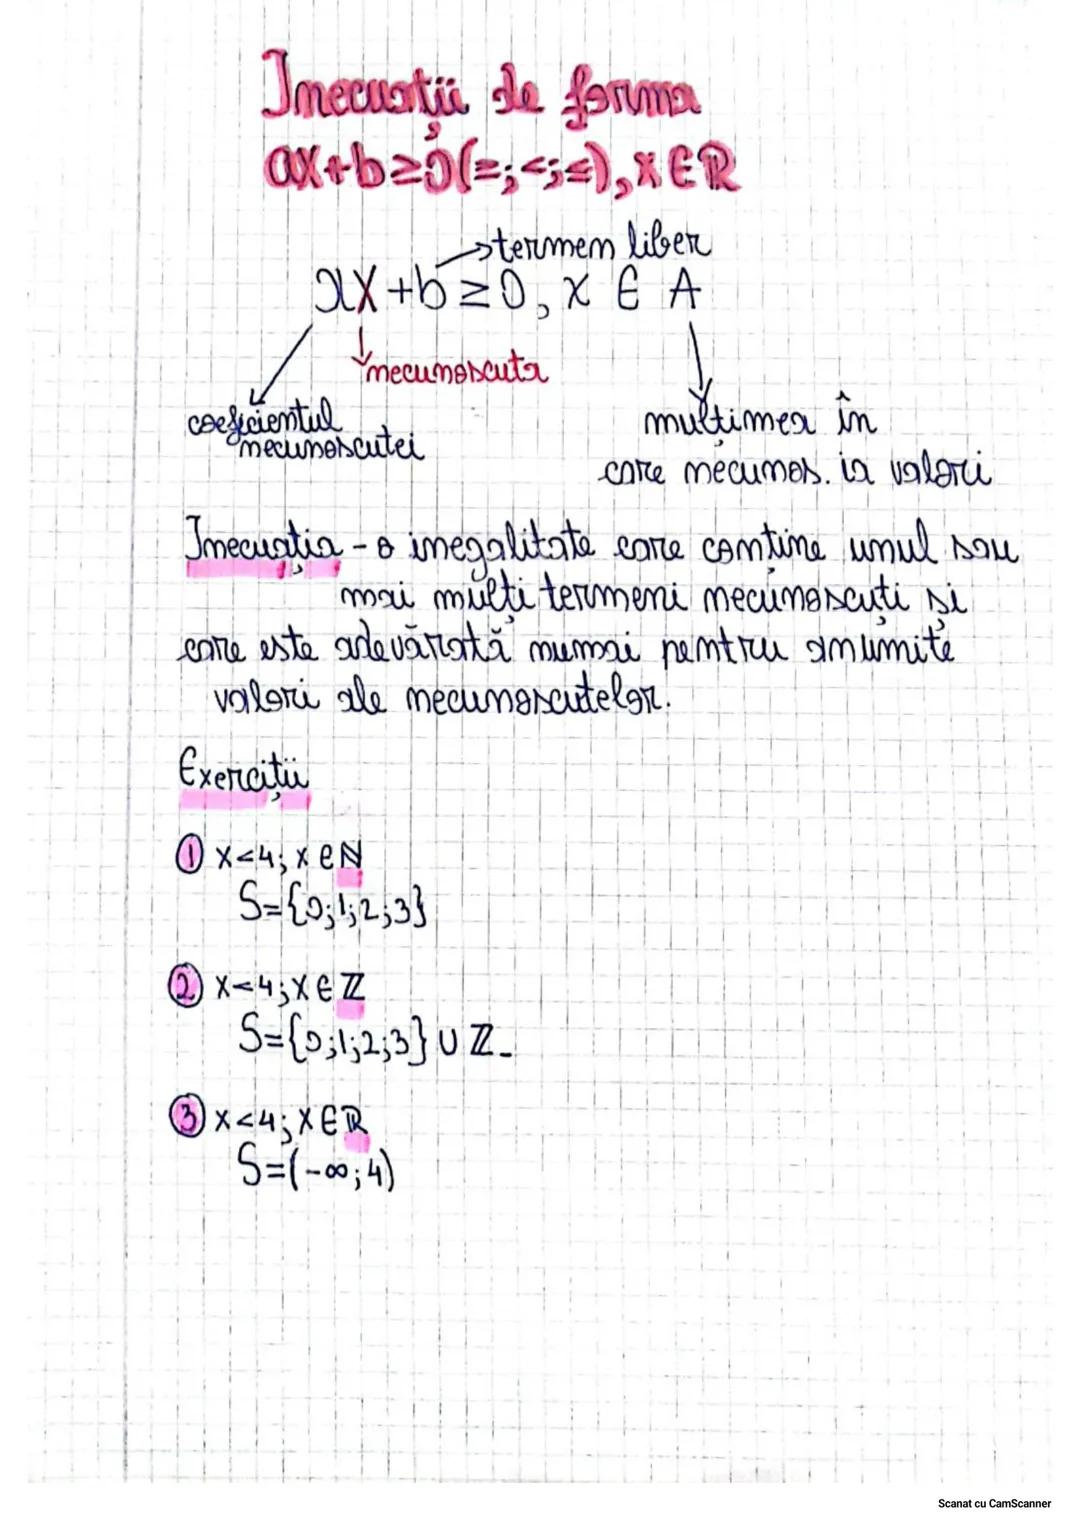 Inecuații de forma
ax+b≥0(≥;<;≤),x∈ℝ
termen liber
ax+b≥0, x ∈ A
necunoscuta
coeficientul
necunoscutei
mulțimea în
care necunos. ia valori
Inecuația - o inegalitate care conține unul sau
mai mulți termeni necunoscuți și
care este adevărată numai pentru anumite
valori ale necunoscutelor.
Exerciții
① x<4; x∈ℕ
S={0;1;2;3}
② x<4; x∈ℤ
S={0;1;2;3} ∪ ℤ₋
③ x<4; x∈ℝ
S=(-∞;4)
Scanat cu CamScanner